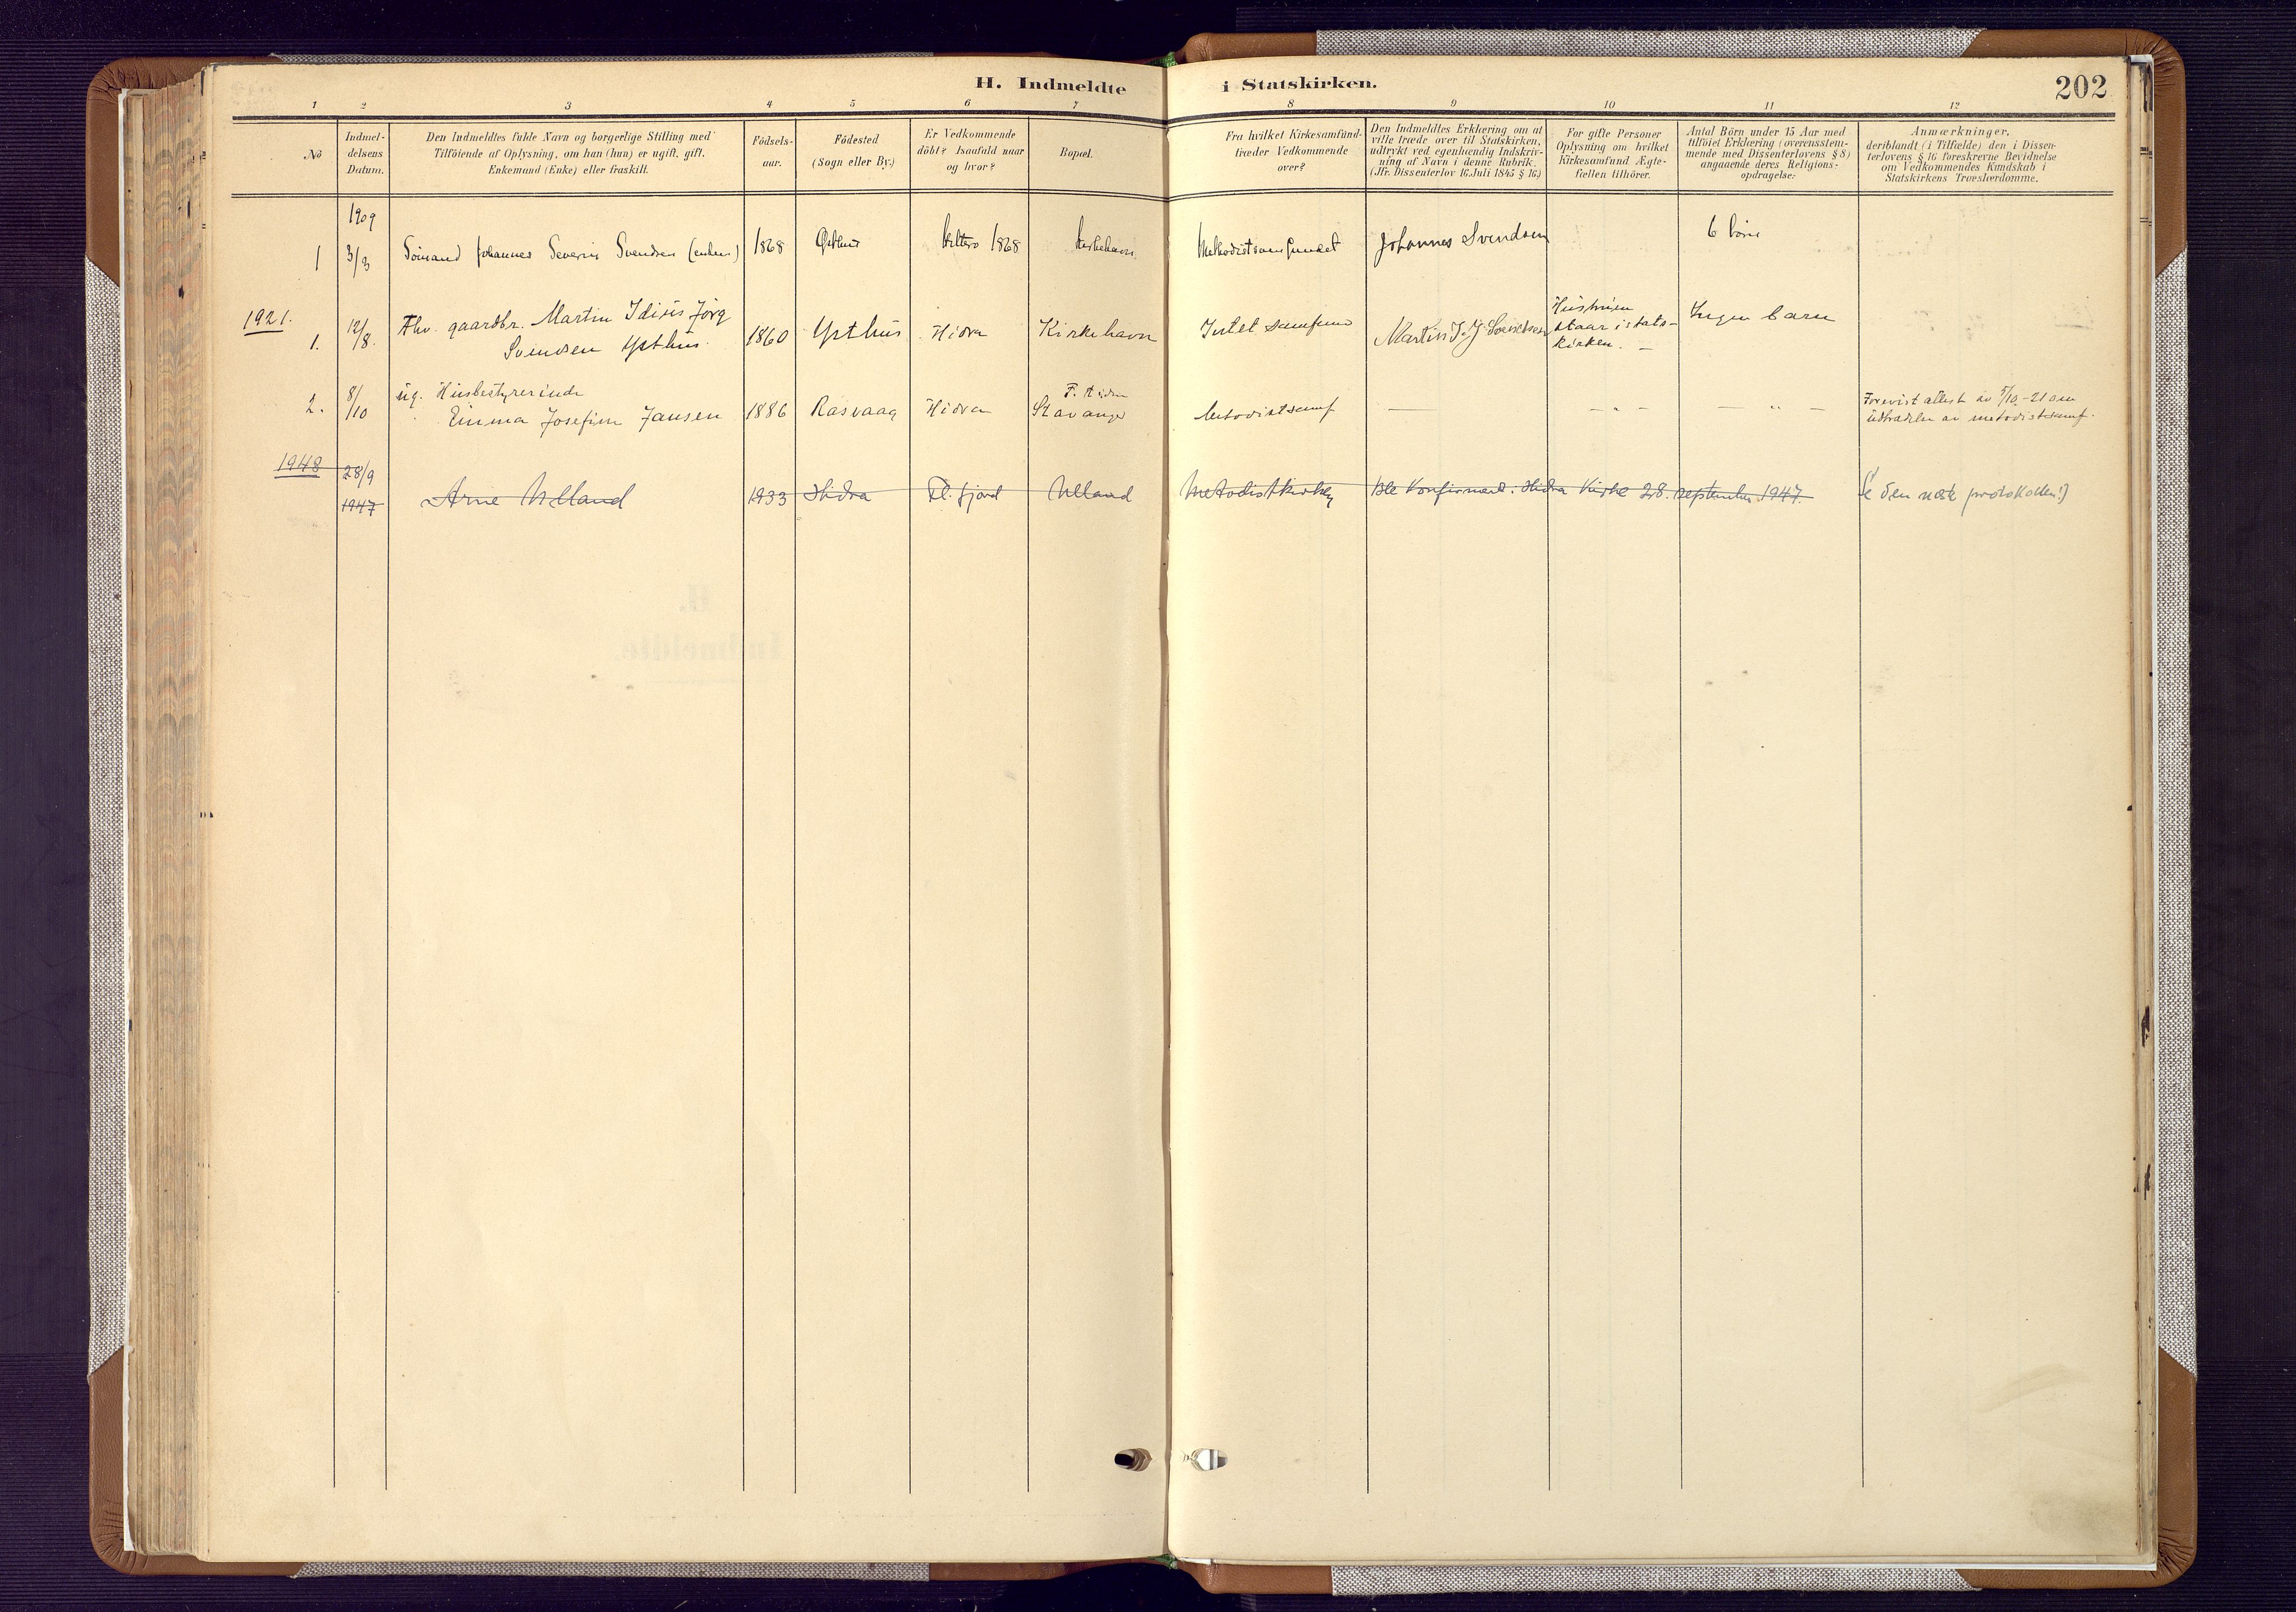 H. Indmeldte i Statskirken. 202
1 2 3 4 5 6 7 8 9 10 11 12
No
Indmel-
delsens
Datum.
Den Indmeldtes fulde Navn og borgerlige Stilling med
Tilföiende af Oplysning, om han (hun) er ugift, gift,
Enkemand (Enke) eller fraskilt.
Födsels-
aar.
Födested
(Sogn eller By.)
Er Vedkommende
döbt? Isaafald naar
og hvor?
Bopæl.
Fra hvilket Kirkesamfund
træder Vedkommende
over?
Den Indmeldtes Erklæring om at
ville træde over til Statskirken,
udtrykt ved egenhændig Indskriv-
ning af Navn i denne Rubrik.
(Jfr. Dissenterlov 16. Juli 1845 § 16.)
For gifte Personer
Oplysning om hvilket
Kirkesamfund Ægte-
fællen tilhörer.
Antal Börn under 15 Aar med
tilföiet Erklæring (overensstem-
mende med Dissenterlovens § 8)
angaaende deres Religions-
opdragelse:
Anmærkninger,
deriblandt (i Tilfælde) den i Dissen-
terlovens § 16 foreskrevne Bevidnelse
om Vedkommendes Kundskab i
Statskirkens Troeslærdomme.
1909
1 3/3 Sömand Johannes Severin Svendsen 1868 Östhus 1868 Kirkehavn Methodistsamfundet Johannes Svendsen 6 börn
1921.
1. 12/8. Fhv. gaardbr. Martin Jörg
Svendsen Ysthus. 1860 Ysthus Hidra Kirkehavn Intet samfund Martin J. J. Svendsen
Hustruen
staar i stats-
kirken. —
Ingen barn
2. 8/10 ug. Husbestyrerinde
Emma Josefine Jansen 1886 Rasvaag Hidra
F. Hidra
Stavanger
Metodistsamf — — " — — " —
Forevist attest av 5/10-21 om
udtrædelse av metodistsamf.
1948
28/9
1947 Arne Ulland 1933 Hidra Fl.fjord Ulland Metodistkirken Ble konfirmert i Hidra Kirke 28. september 1947. (Se den nste protokollen!)